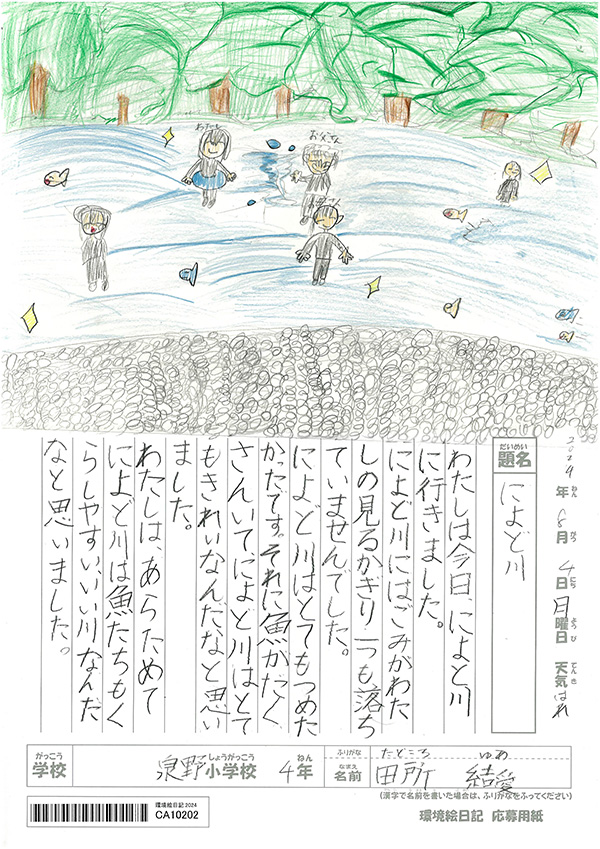 あたし
お父さん
お母さん
2024年8月4日日曜日 天気 はれ
ねん がつ にち ようび てんき
だいめい
題名
によど川
わたしは今日、によど川
に行きました。
によど川にはごみがわた
しの見るかぎり一つも落ち
ていませんでした。
によど川はとてもつめた
かったです。それに魚がたく
さんいてによど川はとて
もきれいなんだなと思い
ました。
わたしは、あらためて
によど川は魚たちもく
らしやすい、いい川なんだ
なと思いました。
がっこう しょうがっこう ねん
学校 泉野小学校 4年
ふりがな たどころ ゆめ
なまえ
名前 田所 結愛
(漢字で名前を書いた場合は、ふりがなをふってください)
環境絵日記2024
CA10202
環境絵日記 応募用紙